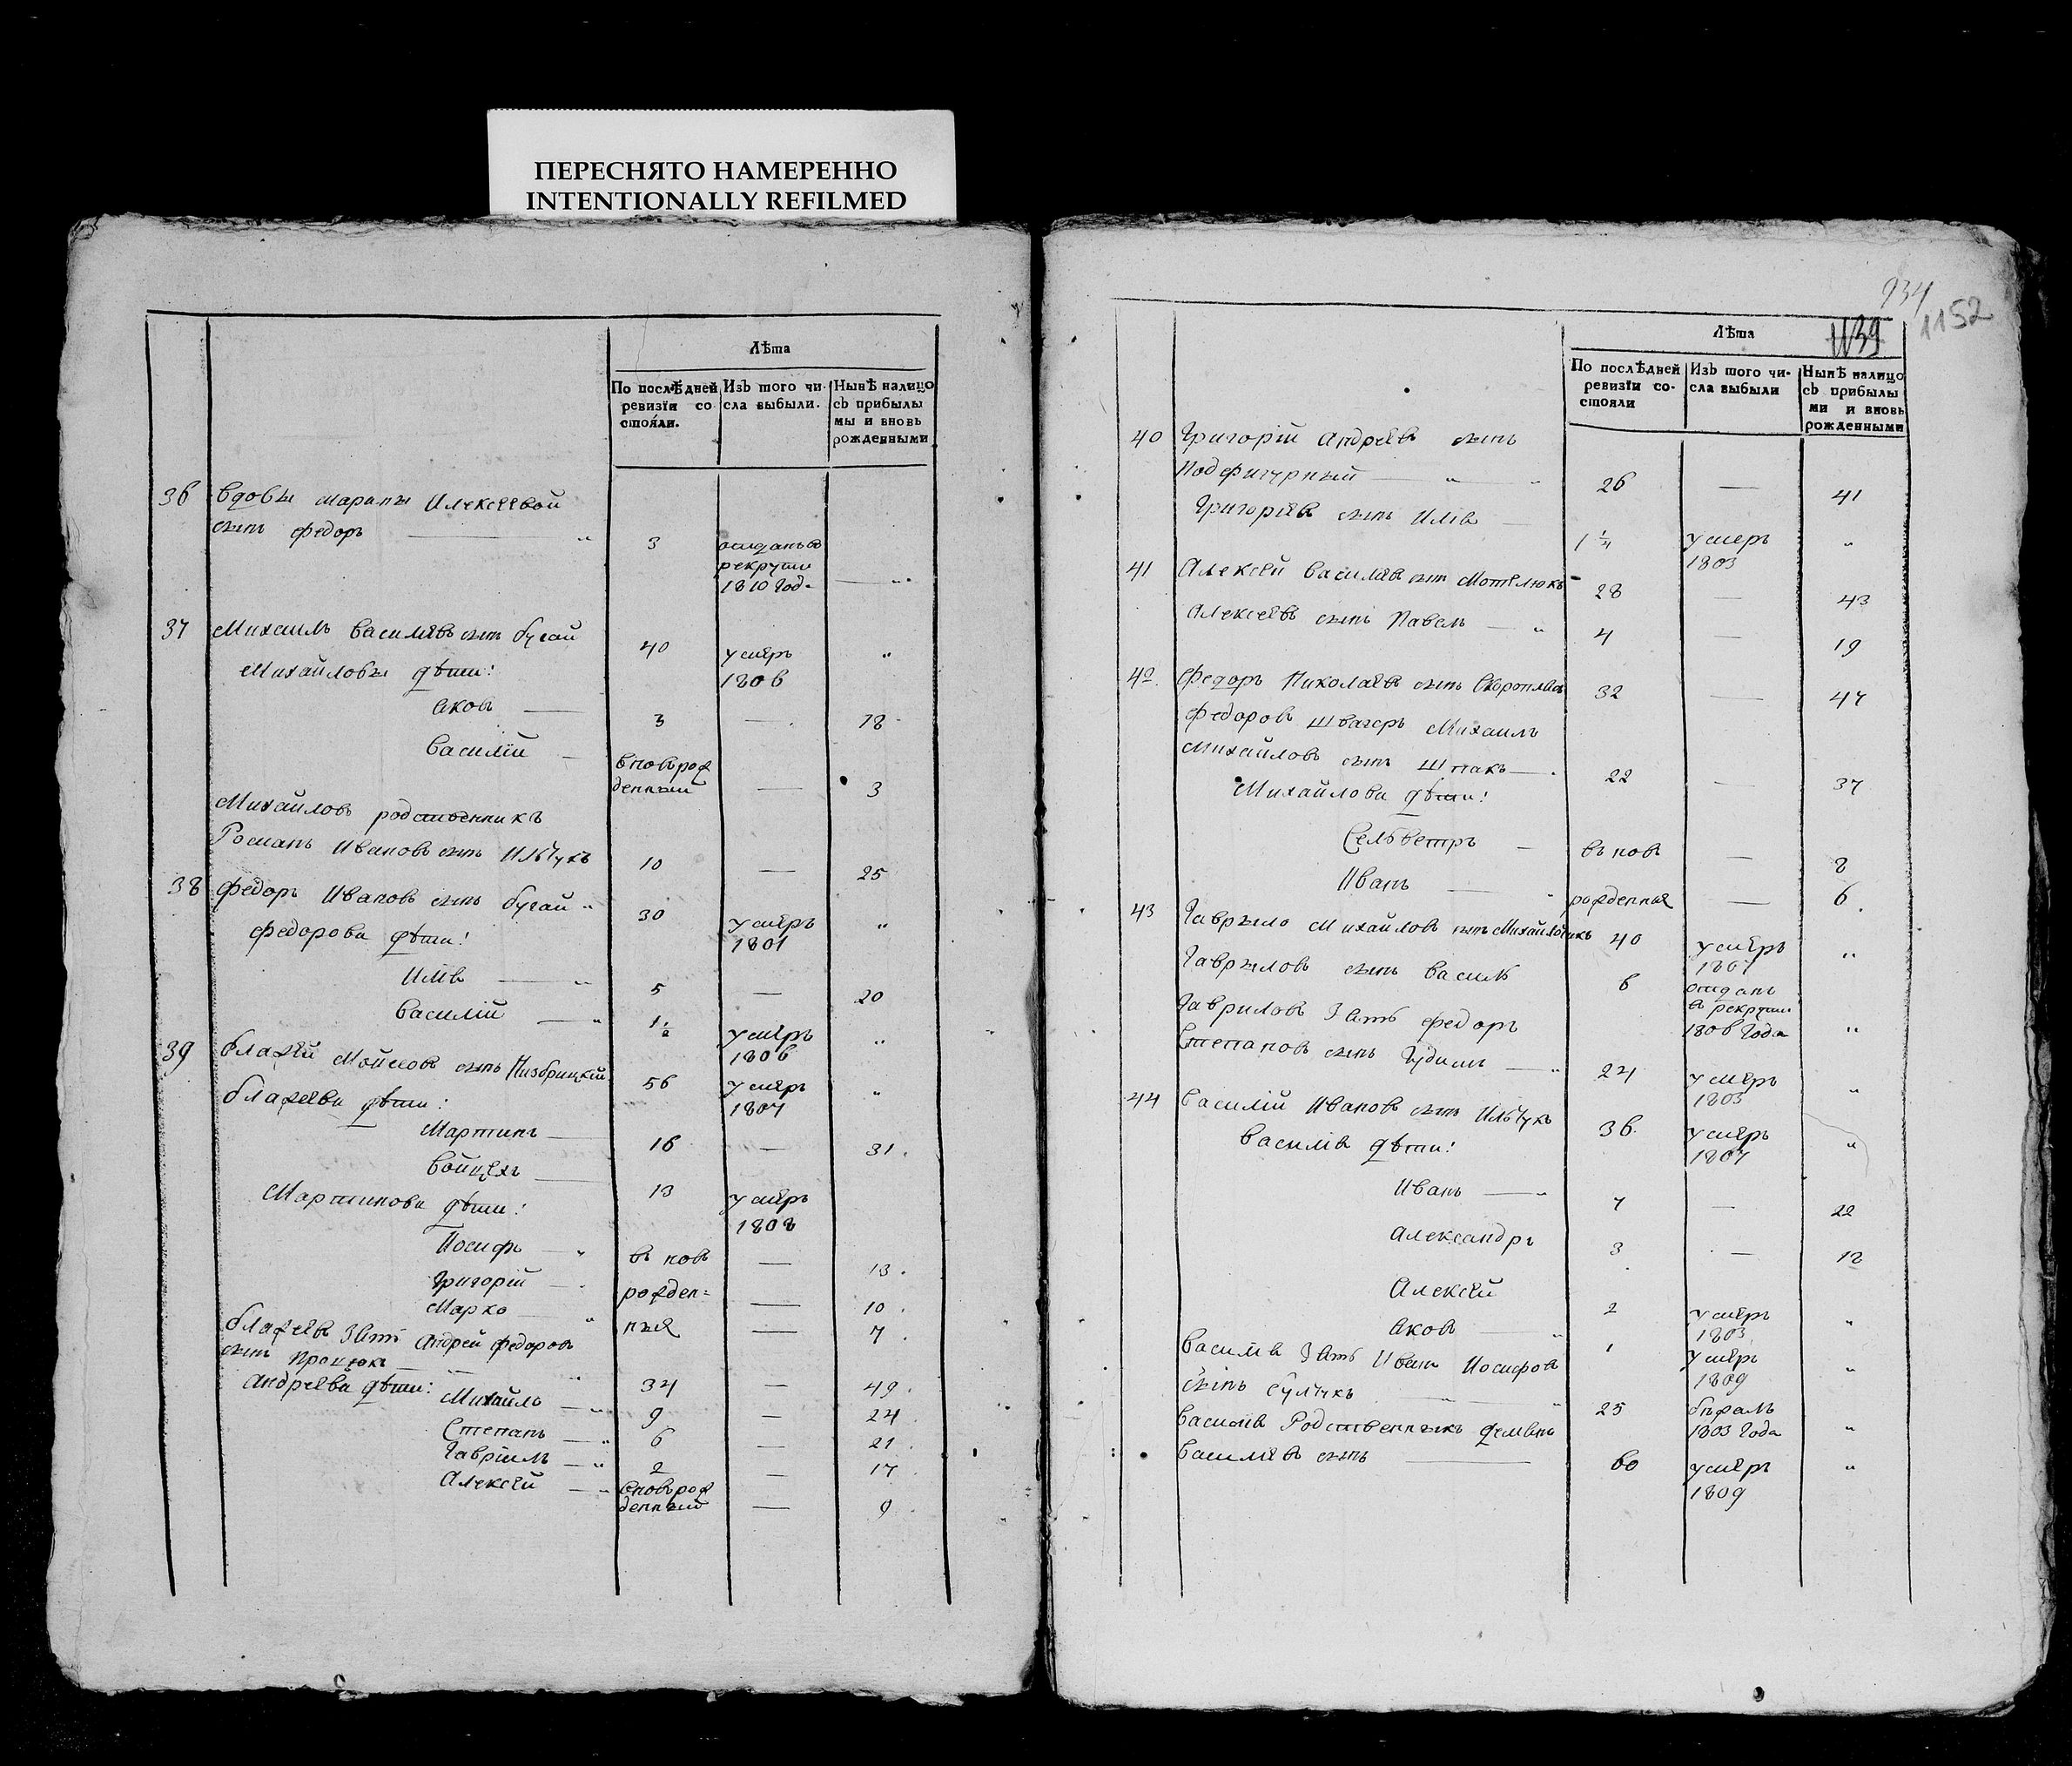 ПЕРЕСНЯТО НАМЕРЕННО
INTENTIONALLY REFILMED
Лѣта
По послѣдней ревизїи состояли.
Изъ того числа выбыли.
Нынѣ налицо съ прибылымы и вновь рожденными
36 вдовы Марапы Илексеевой
сынъ федоръ 3 отданъ в рекруты 1810 год.
37 Михаилъ Василевъ сынъ бугай 40 умеръ 1806 "
Михайловы дѣти:
Яковъ 3 — 18
Василий вновь рожденный — 3
Михайловъ родственникъ
Романъ Ивановъ сынъ Ильчукъ 10 — 25
38 федоръ Ивановъ сынъ бугай 30 умеръ 1801 "
федорова дѣти:
Илья 5 — 20
Василий 1 1/2 умеръ 1806 "
39 блажей Мойсеовъ сынъ Низбрицкий 56 умеръ 1807 "
блажеева дѣти:
Мартинъ 16 — 31
Войцехъ 13 умеръ 1808
Мартинова дѣти:
Иосифъ въ новъ — 13
Григорий рожден= — 10
Марко ные — 7
блажеевъ зять Андрей федоровъ
сынъ Процюкъ 34 — 49
Андреева дѣти: Михайло 9 — 24
Степанъ 6 — 21
Гавриилъ 2 — 17
Алексей вновь рожденный — 9
934
1152
1139
Лѣта
По послѣдней ревизїи состояли
Изъ того числа выбыли
Нынѣ налицо съ прибылыми и вновь рожденными
40 Григорий Андреевъ сынъ
Подфигурный 26 — 41
Григорьевъ сынъ Илья 1 1/4 умеръ 1803 "
41 Алексей Василевъ сынъ Мотелюкъ 28 — 43
Алексеевъ сынъ Павелъ 4 — 19
42 федоръ Николаевъ сынъ 32 — 47
федоровъ швагеръ Михаилъ
Михайловъ сынъ Шпакъ 22 — 37
Михайлова дѣти:
Сельветръ въ новъ — 8
Иванъ рожденные — 6
43 Гаврыло Михайловъ сынъ 40 умеръ 1807 "
Гаврыловъ сынъ Василь 6 отданъ в рекруты 1806 года "
Гавриловъ зять федоръ
Степановъ сынъ Гудимъ 24 умеръ 1803 "
44 Василий Ивановъ сынъ Ильчукъ 36 умеръ 1807 "
Василия дѣти:
Иванъ 7 — 22
Александръ 3 — 18
Алексей 2 умеръ 1803 "
Яковъ 1 умеръ 1809 "
Василия зять Иванъ Иосифовъ
сынъ 25 бѣжалъ 1803 года "
Василия Родственныкъ демянъ
Василевъ сынъ 60 умеръ 1809 "